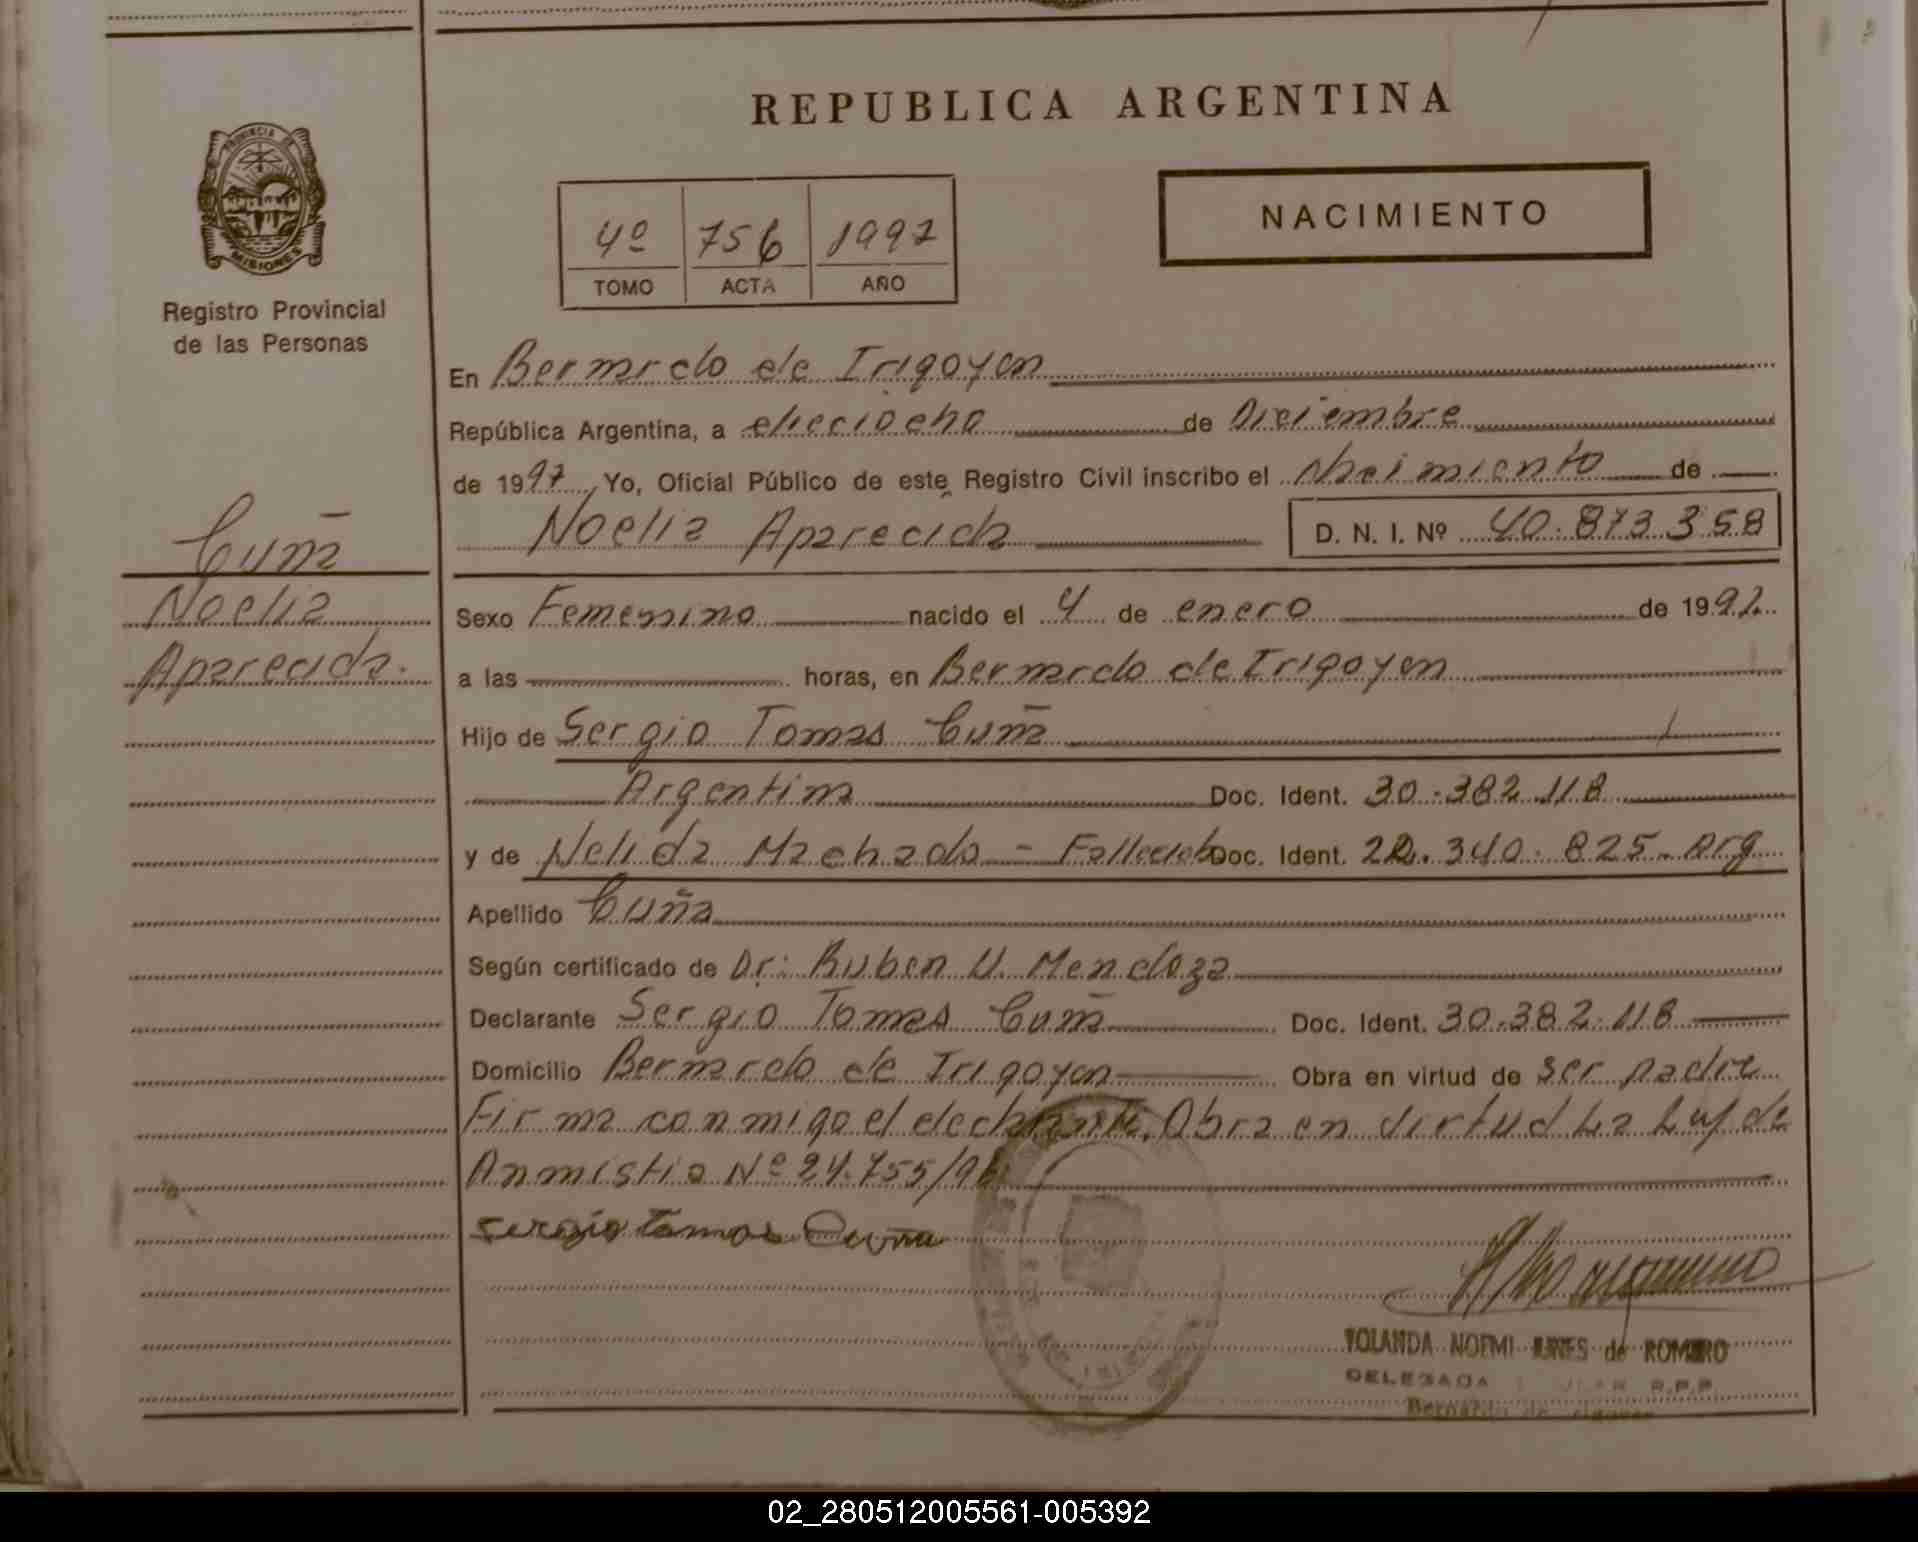 REPUBLICA ARGENTINA
PROVINCIA DE
MISIONES
Registro Provincial
de las Personas
4º 756 1997
TOMO ACTA AÑO
NACIMIENTO
En Bernardo de Irigoyen
República Argentina, a dieciocho de Diciembre
de 1997 Yo, Oficial Público de este Registro Civil inscribo el Nacimiento de
Noelia Aparecida D. N. I. Nº 40.873.358
Cuña
Noelia
Aparecida.
Sexo Femenino nacido el 4 de enero de 1992
a las horas, en Bernardo de Irigoyen
Hijo de Sergio Tomas Cuña
Argentina Doc. Ident. 30.382.118
y de Nelida Machado - Fallecida Doc. Ident. 22.340.825 - Arg
Apellido Cuña
Según certificado de Dr: Ruben U. Mendoza
Declarante Sergio Tomas Cuña Doc. Ident. 30.382.118
Domicilio Bernardo de Irigoyen Obra en virtud de ser padre
Firma conmigo el declarante. Obra en virtud La Ley de
Anmistia Nº 24.755/96
sergio tomas Cuña
YOLANDA NOEMI de ROMERO
DELEGADA R.P.P.
Bernardo de
02_280512005561-005392